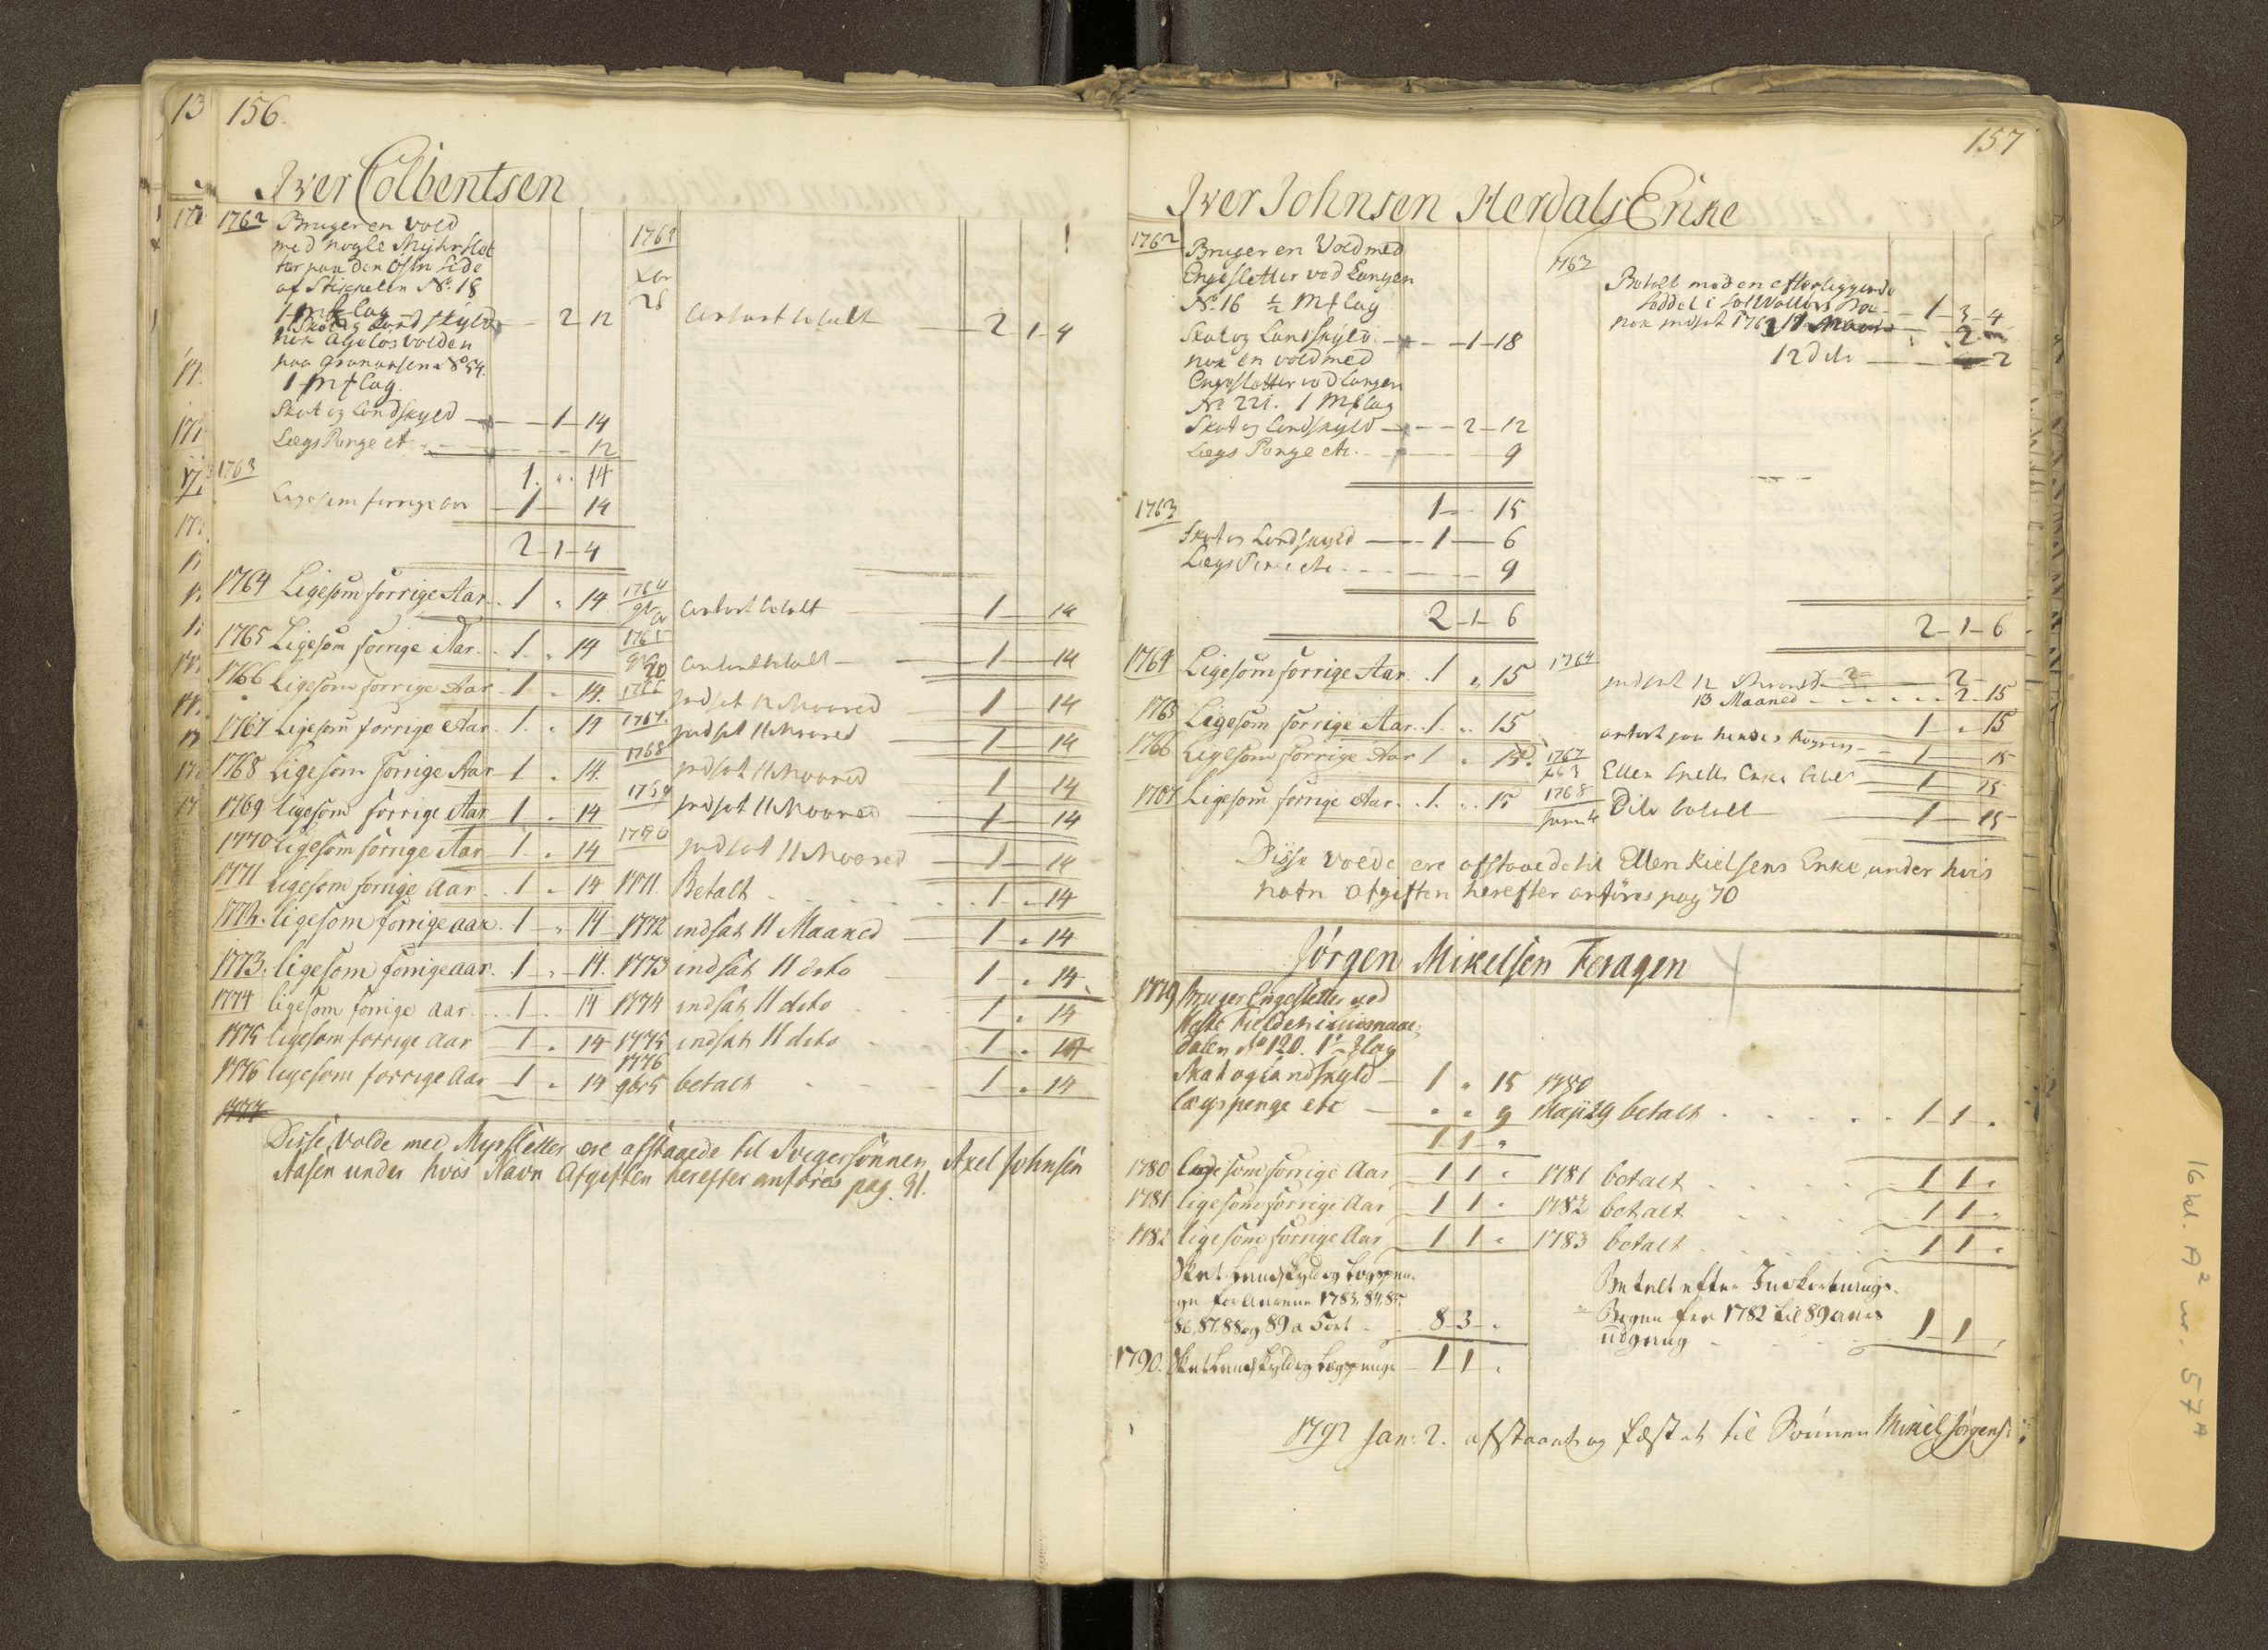 156.
Iver Colbentsen
1762 Bruger en Vold
med nogle Myhrslet
ter paa den Østre Side
af Stikkelen No. 18
1 mk lag
Skat og Landskyld 2 12
nok Agelös volden
paa Granaasen No 54.
1 mk lag.
Skat og Landskyld 1 14
Lægs Penge etc 12
1 " 14
1763
Ligesom forrige aar 1 14
2 1 4
1763
xbr
28 Contant betalt 2 1 4
1764 Ligesom forrige Aar 1 " 14 1764 Contant betalt 1 14
1765 Ligesom forrige Aar 1 " 14 1765 Contant betalt 1 14
1766 Ligesom forrige Aar 1 " 14. 1766 indsat 12 Maaned 1 14
1767 Ligesom forrige Aar 1 " 14 1767. indsat 11 Maaned 1 14
1768 Ligesom forrige Aar 1 " 14. 1768 indsat 11 Maaned 1 14
1769 ligesom forrige Aar 1 " 14 1769 indsat 11 Maaned 1 14
1770 ligesom forrige Aar 1 " 14 1770 indsat 11 Maaned 1 14
1771 ligesom forrige Aar 1 " 14 1771. Betalt 1 " 14
1772. ligesom forrige aar. 1 " 14 1772 indsat 11 Maaned 1 " 14
1773. ligesom forrige aar. 1 " 14. 1773 indsat 11 dito 1 " 14.
1774 ligesom forrige aar 1 " 14 1774 indsat 11 dito 1 " 14
1775 ligesom forrige aar 1 " 14 1775 indsat 11 dito 1 " 14
1776 ligesom forrige Aar 1 " 14 1776 9br 5 betalt 1 " 14
1777
Disse Volde med Myrsletter ere afstaaede til Svigersønnen Axel Johnsen
Aasen under hvis Navn Afgiften herefter anføres pag. 91.
157
Iver Johnsen Herdals Enke
1762 Bruger en Vold med
Engesletter ved Langen
No. 16 ½ mk lag
Skat og Landskyld 1 18
nok en vold med
Engesletter ved Langen
No 221. 1 mk lag
Skat og Landskyld 2 12
Lægs Penge etc. 9
1 " 15
1763
Skat og Landskyld 1 6
Lægs Penge etc. 9
2 1 6
1763
Betalt med en efterliggende
Seddel 1 3 4
nok indsat 1763 2
12 dito 2
2 1 6
1764 Ligesom forrige Aar 1 " 15 1764 indsat 12 Maaned 2
13 Maaned 2 15
1765 Ligesom forrige Aar 1 " 15 anført paa hendes 1 " 15
1766 Ligesom forrige Aar 1 " 15. 1767 Ellen Enke 1 15
1767 Ligesom forrige Aar 1 " 15 1768 Dito betalt 1 15
Disse volde ere afstaaede til Ellen Kielsens Enke, under hvis
nafn Afgiften herefter anføres pag 70
Jörgen Mikelsen Feragen
1779 Bruger Engesletter ved
dalen No 120.
Skat og Landskyld 1 " 15 1780
Lægspenge etc " " 9 Maji 29 betalt 1 1 "
1 1 "
1780 ligesom forrige Aar 1 1 " 1781 betalt 1 1 "
1781 ligesom forrige Aar 1 1 " 1782 betalt 1 1 "
1782 ligesom forrige Aar 1 1 " 1783 betalt 1 1 "
Skat Landskyld og Lægspen-
ge for Aarene 1783, 84, 85.
86, 87, 88 og 89 a 5 ort 8 3 "
Betalt efter Indkortnings-
Bogen for 1782 til 89 aars
udgang 1 1 "
1790. Skat Landskyld og Lægspenge 1 1 "
1792 Jan: 2. afstaaet og fæstet til Sönnen Mikel Jörgens:
16 kl. A² nr. 57ᴬ